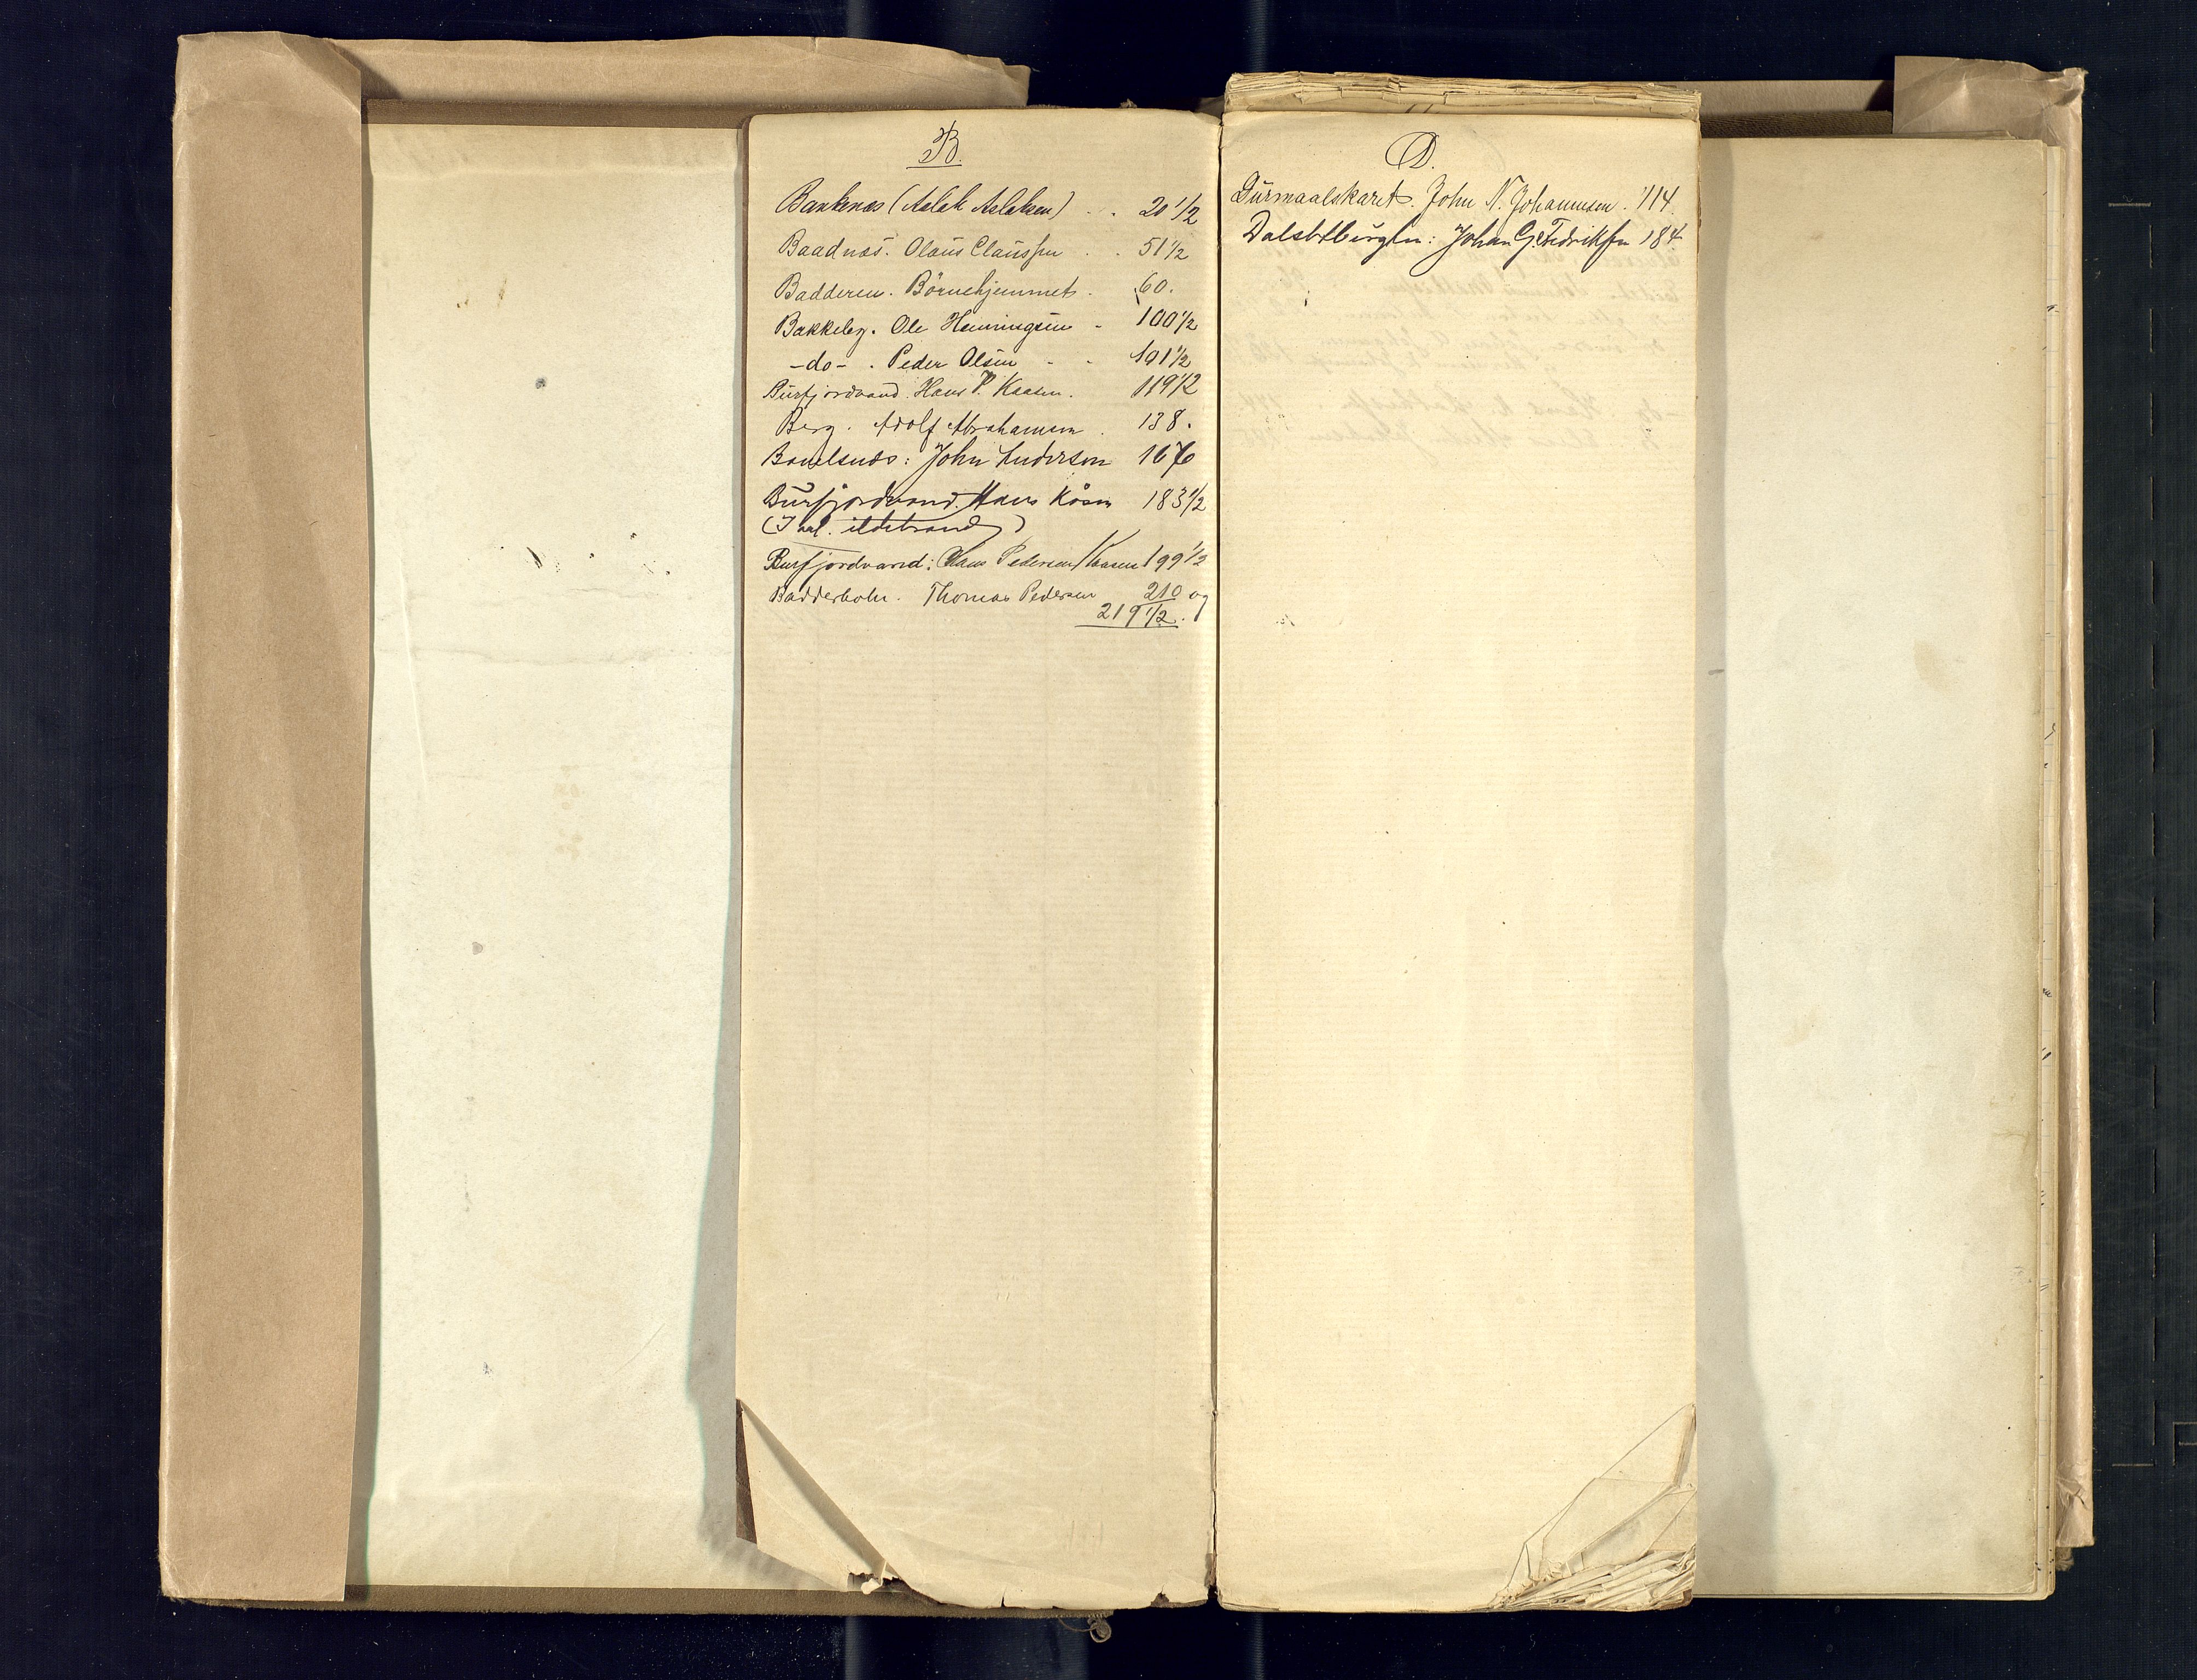 B.
Bankenes (Aslak Aslaksen) . . 20 1/2
Baadnæs. Olaüs Claüssen . . 51 1/2
Badderen. Börnehjemmet . 60.
Bakkeby. Ole Henningsen - 100 1/2
-do- . Peder Olsen - - 101 1/2
Bürfjordvand. Hans P. Kaasen. 119 1/2
Berg. Adolf Abrahamsen . 138.
John Anderson 176
Bürfjordvand. Hans Kåsen 183 1/2
ildebrand)
Burfjordvand: Hans Pedersen Kaasen 199 1/2
Badderholm. Thomas Pedersen 210 og
219 1/2.
D.
Dürmaalskaret. John N. Johannesen. 114.
Johan G. Fredriksen 184